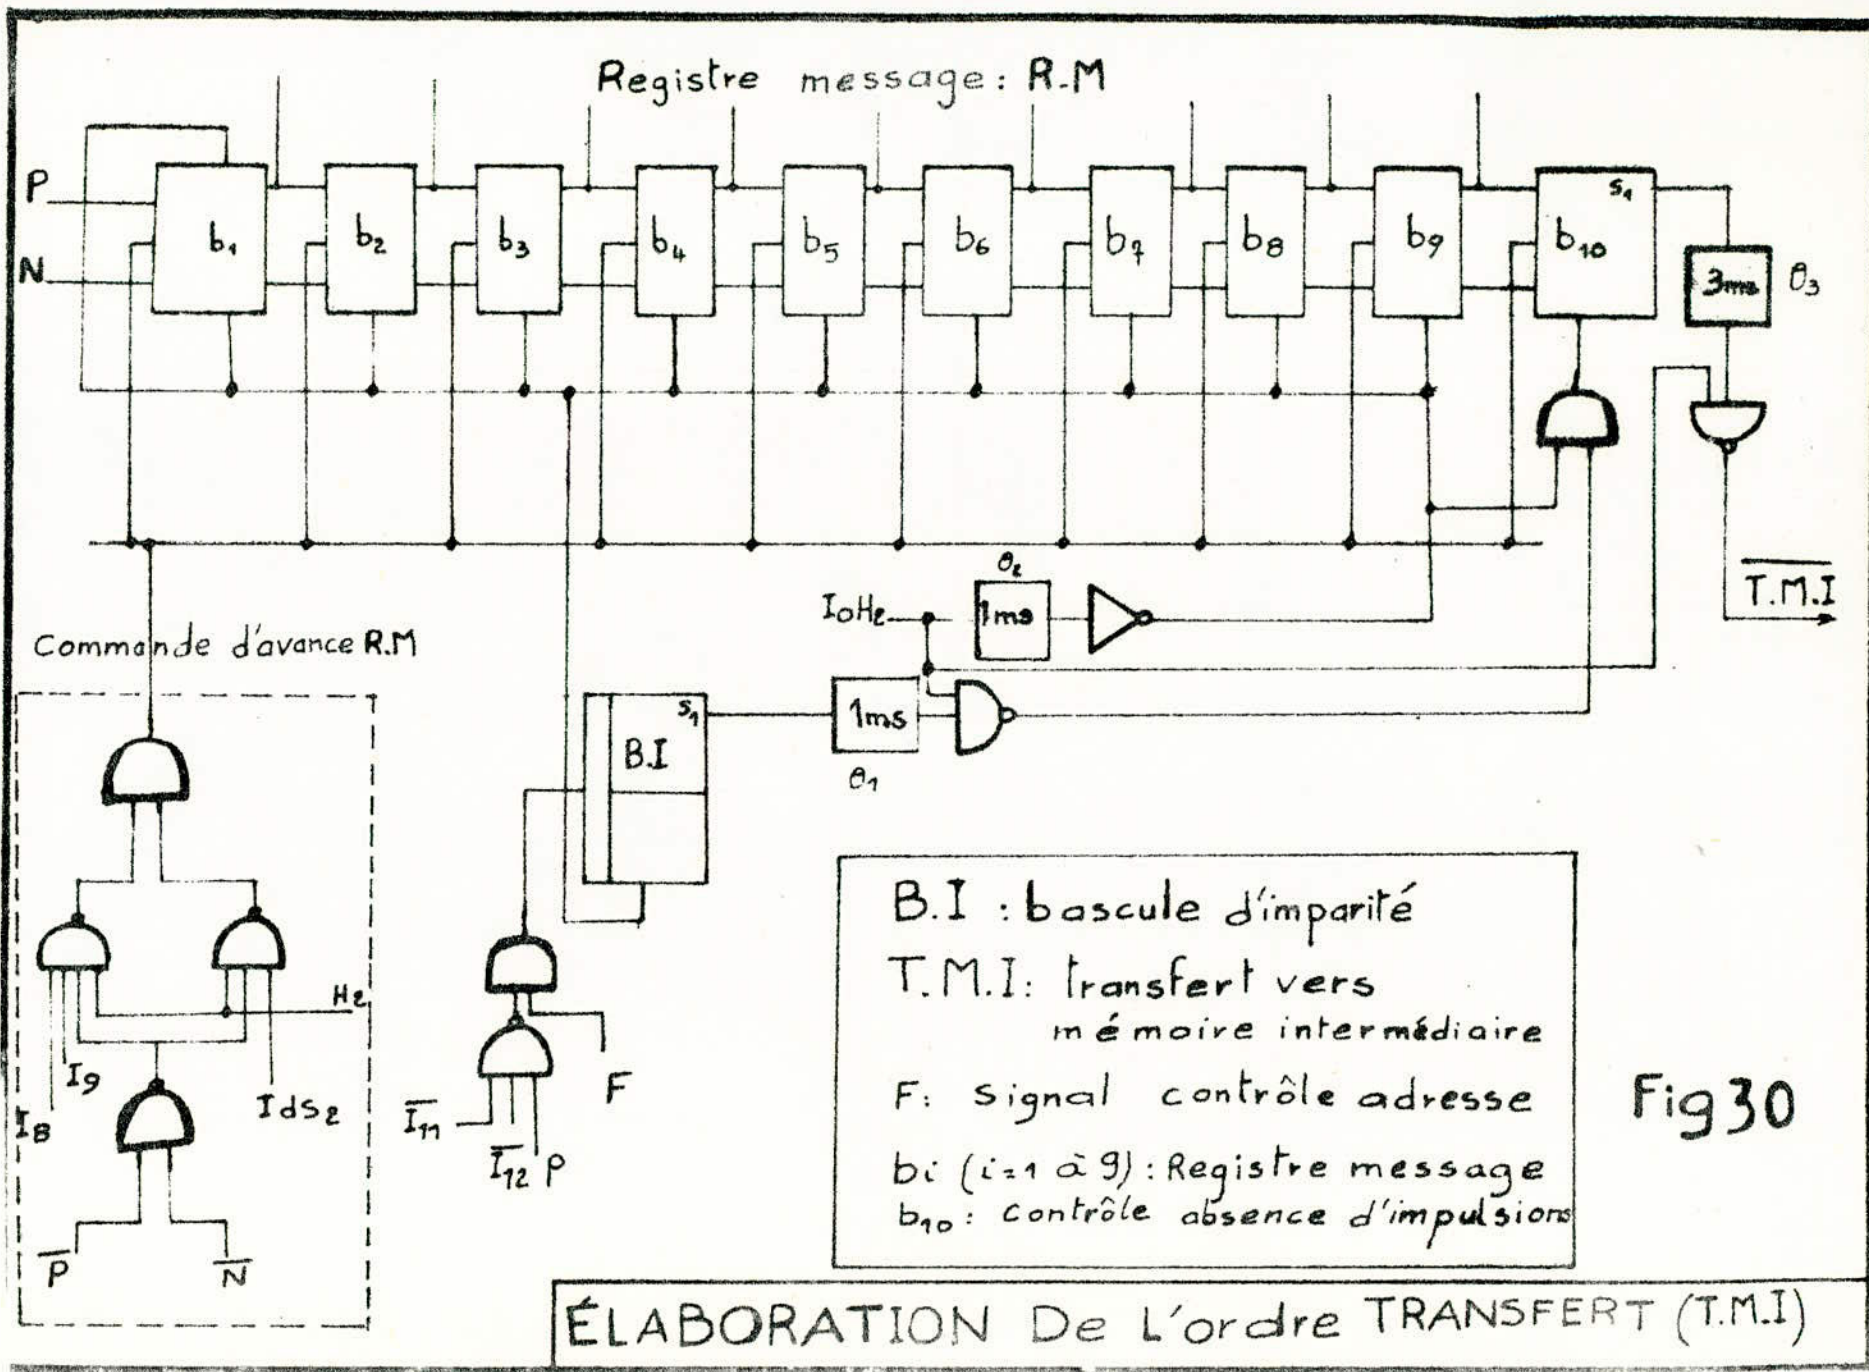 Registre message: R.M
P
N
b₁
b₂
b₃
b₄
b₅
b₆
b₇
b₈
b₉
b₁₀
s₁
3ms
θ₃
θ₂
I₀H₂
1ms
T.M.I
Commande d'avance R.M
s₁
B.I
1ms
θ₁
H₂
I₉
I₈
Ids₂
P̅
N̅
I̅₁₁
I̅₁₂
P
F
B.I : bascule d'imparité
T.M.I: transfert vers
mémoire intermédiaire
F: signal contrôle adresse
bi (i=1 à 9): Registre message
b₁₀: contrôle absence d'impulsions
Fig 30
ÉLABORATION De L'ordre TRANSFERT (T.M.I)